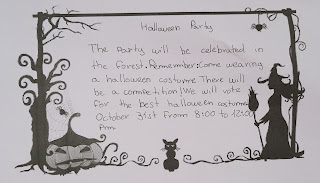 Halloween Party
The Party will be celebrated in
the forest. Remember: Come wearing
a halloween costume. There will
be a competition! We will vote
for the best halloween costume.
October 31st From 8:00 to 12:00
pm.